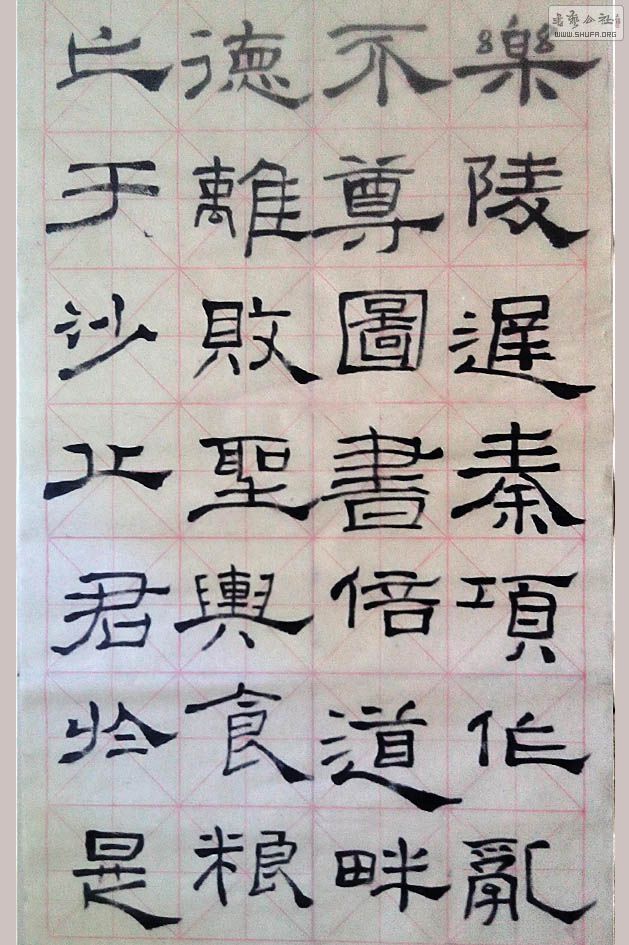 樂陵遲秦項作亂
不尊圖書倍道畔
德離敗聖輿食粮
亡于沙丘君於是
書藝公社
WWW.SHUFA.ORG